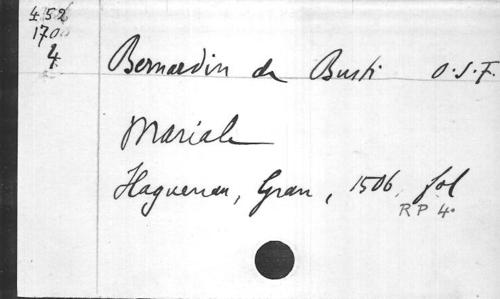 452
1700
4
Bernardin de Busti O.S.F.
Mariale
Haguenau, Gran, 1506, fol
RP 4.